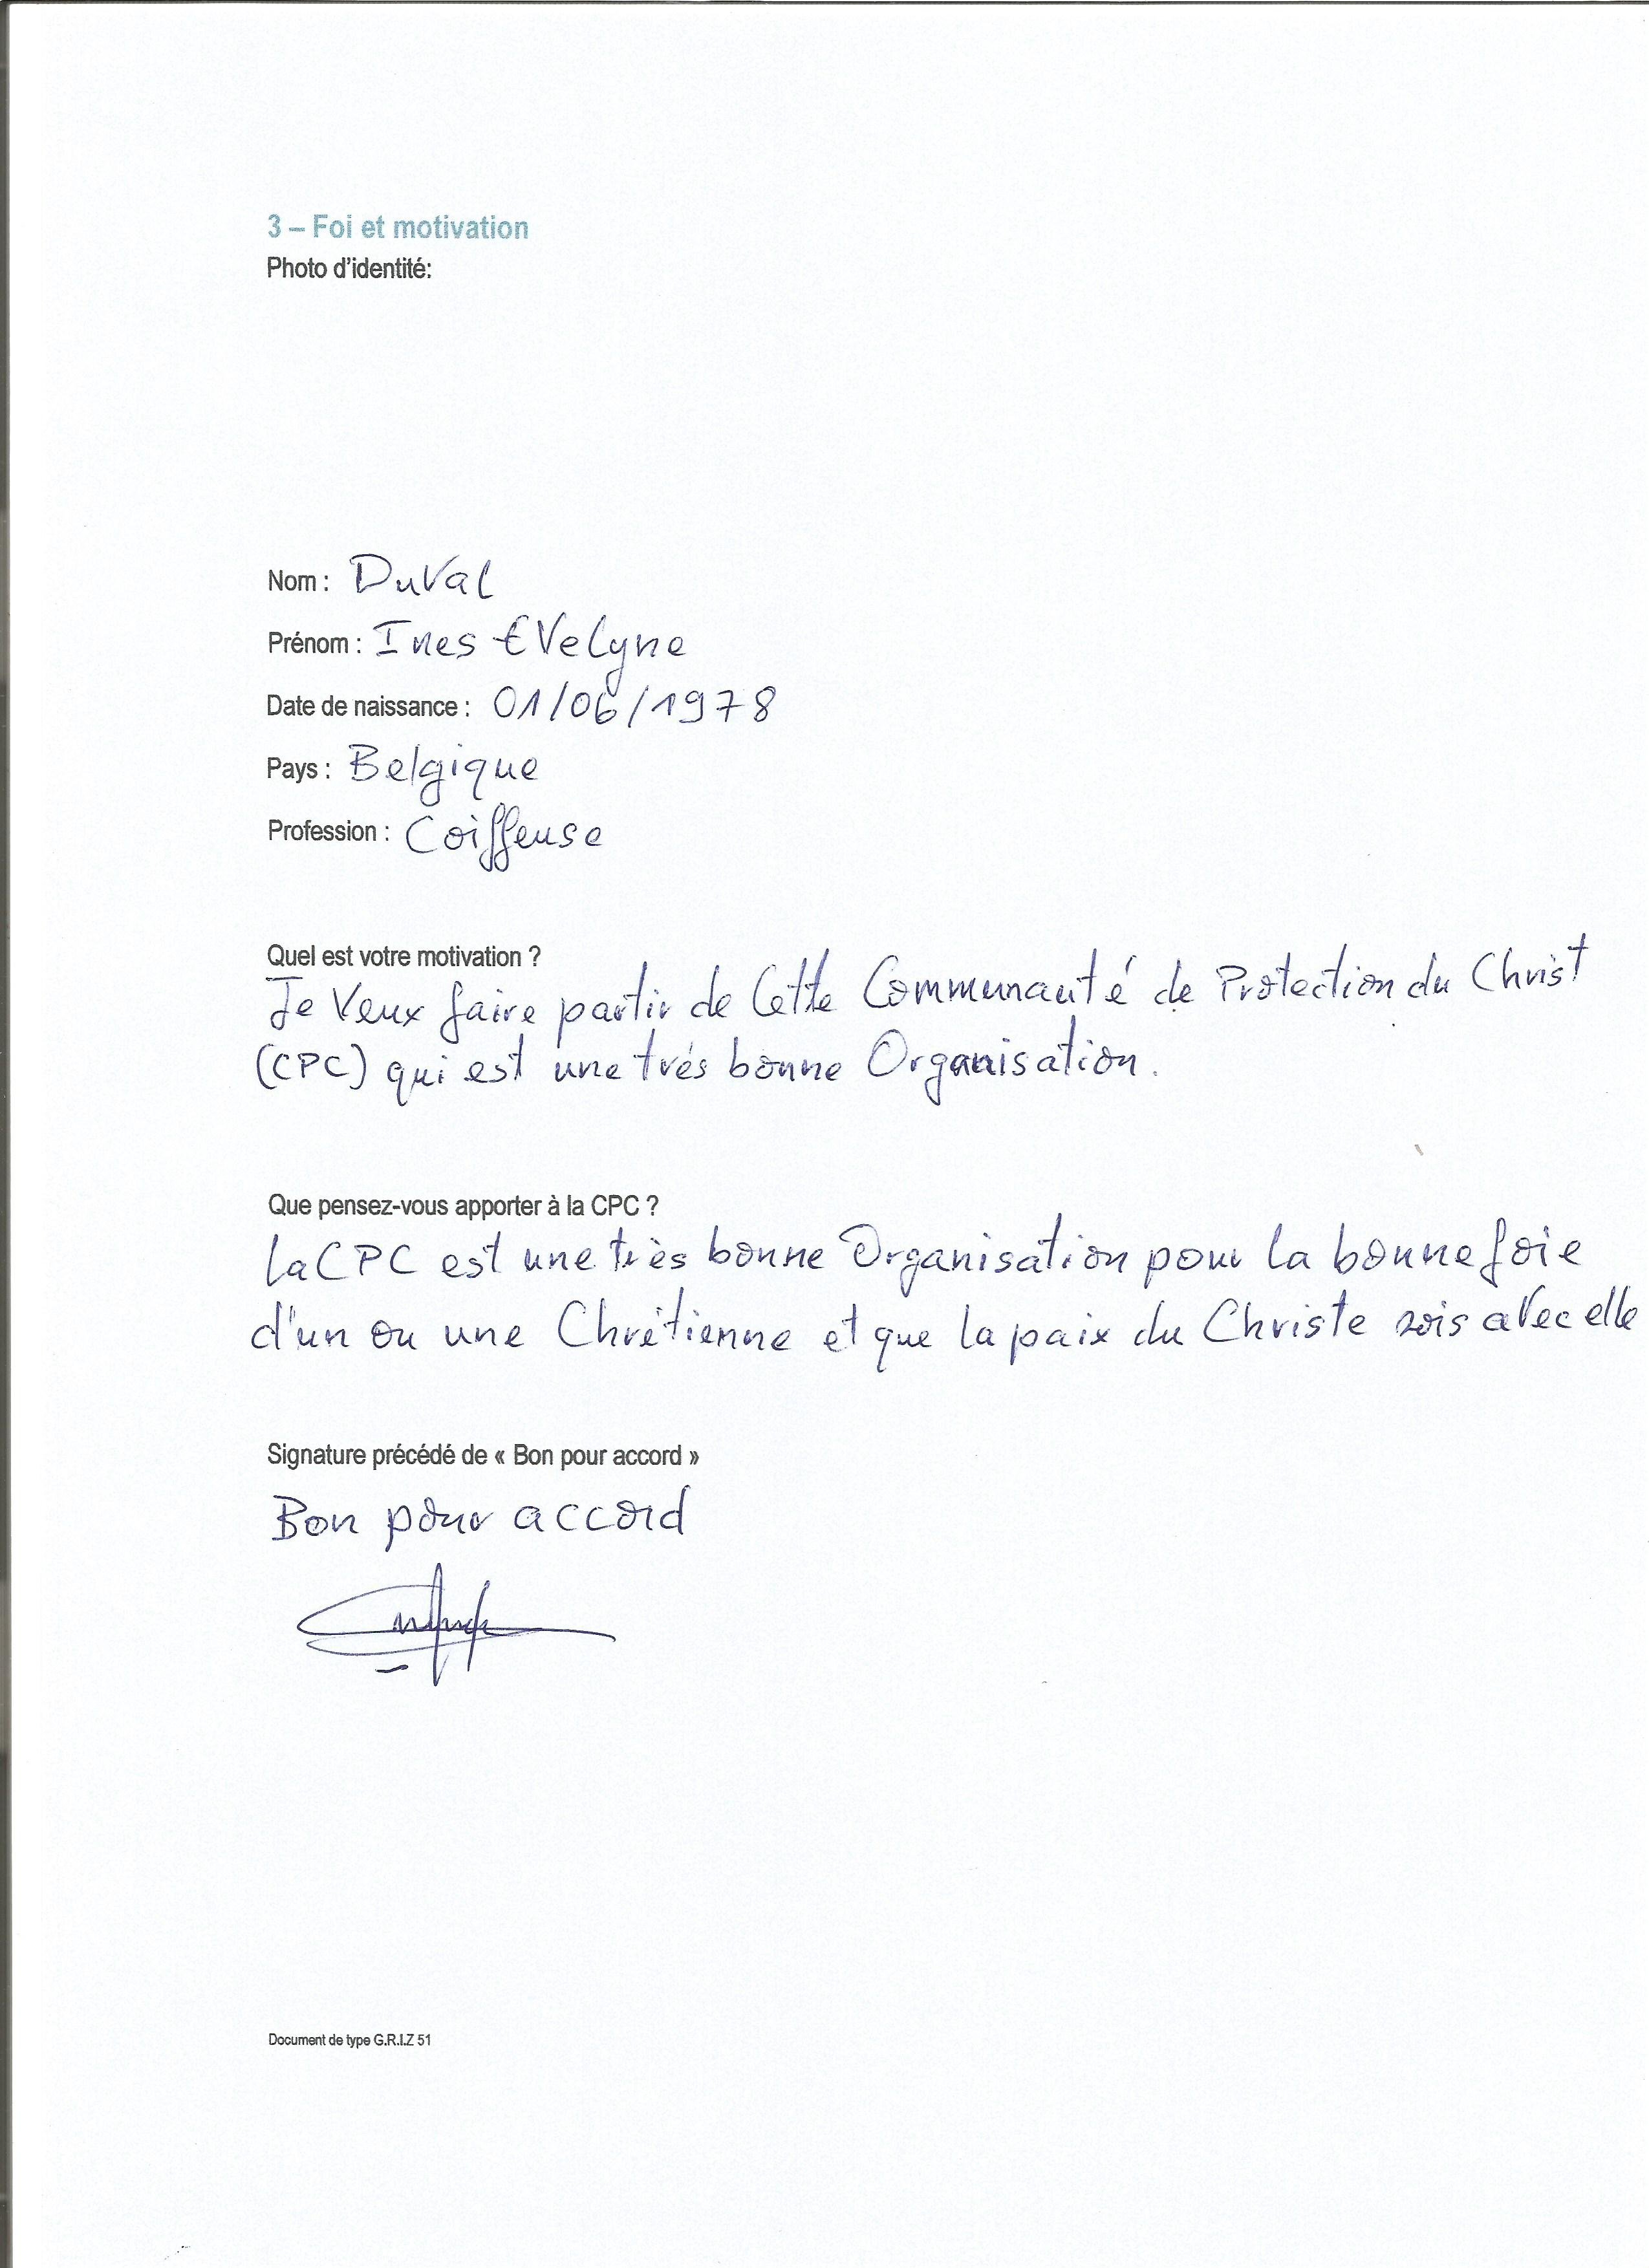 3 – Foi et motivation
Photo d'identité:
Nom : DuVal
Prénom : Ines EVelyne
Date de naissance : 01/06/1978
Pays : Belgique
Profession : Coiffeuse
Quel est votre motivation ?
Je Veux faire partir de Cette Communauté de Protection du Christ
(CPC) qui est une trés bonne Organisation.
Que pensez-vous apporter à la CPC ?
La CPC est une très bonne Organisation pour la bonne foie
d'un ou une Chrétienne et que la paix du Christe sois avec elle
Signature précédé de « Bon pour accord »
Bon pour accord
Document de type G.R.I.Z 51